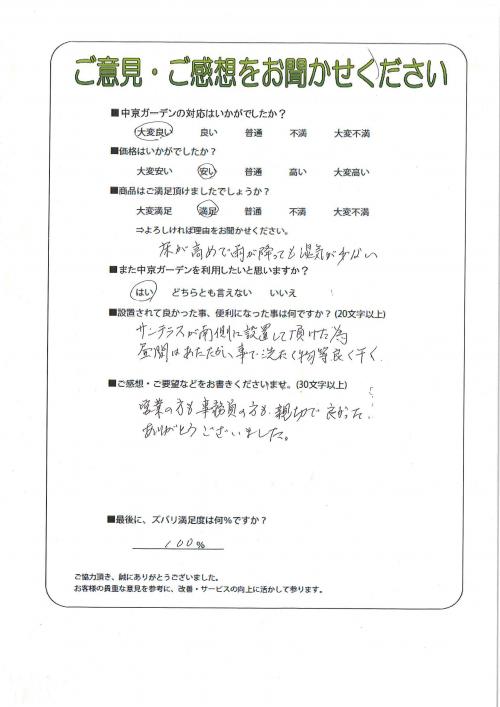 ご意見・ご感想をお聞かせください
■中京ガーデンの対応はいかがでしたか？
大変良い 良い 普通 不満 大変不満
■価格はいかがでしたか？
大変安い 安い 普通 高い 大変高い
■商品はご満足頂けましたでしょうか？
大変満足 満足 普通 不満 大変不満
⇒よろしければ理由をお聞かせください。
床が高めで雨が降っても湿気が少ない
■また中京ガーデンを利用したいと思いますか？
はい どちらとも言えない いいえ
■設置されて良かった事、便利になった事は何ですか？(20文字以上)
サンテラスが南側に設置して頂けた為
昼間はあたたかい事で洗たく物等良く干く
■ご感想・ご要望などをお書きくださいませ。(30文字以上)
営業の方も事務員の方も親切で良かった。
ありがとうございました。
■最後に、ズバリ満足度は何%ですか？
100%
ご協力頂き、誠にありがとうございました。
お客様の貴重な意見を参考に、改善・サービスの向上に活かして参ります。